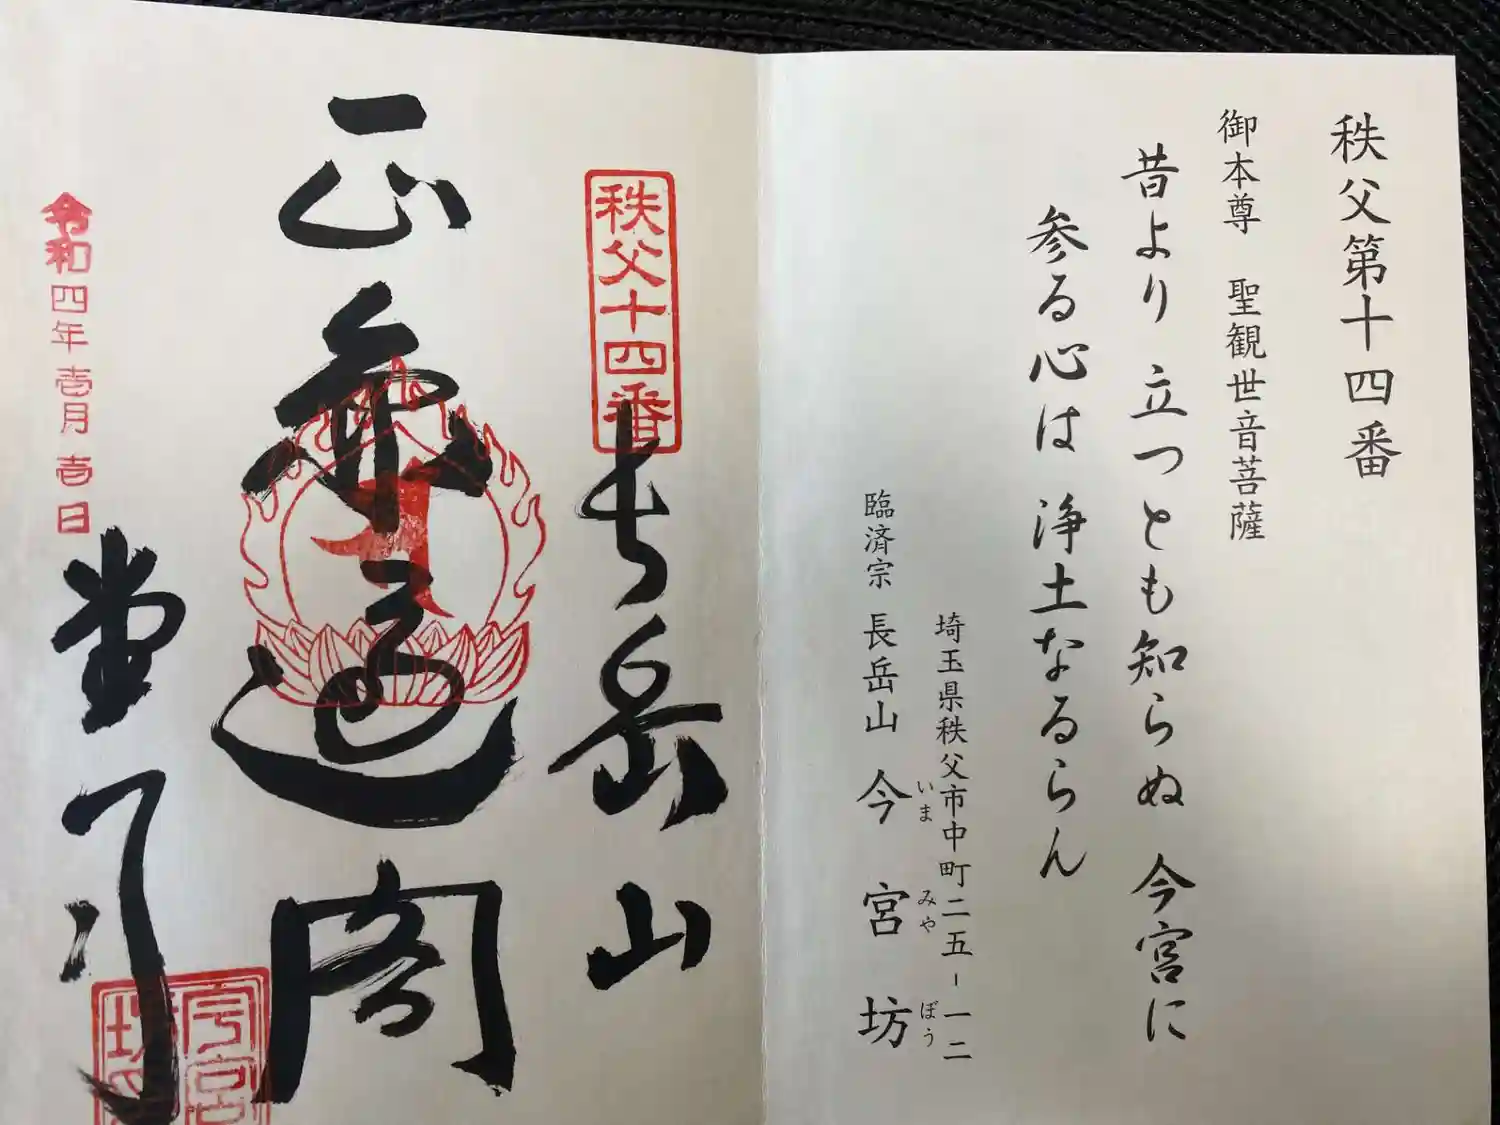 秩父第十四番
御本尊 聖観世音菩薩
昔より 立つとも知らぬ 今宮に
参る心は 浄土なるらん
埼玉県秩父市中町二五-一二
臨済宗 長岳山 今宮坊
いま みや ぼう
秩父十四番
長岳山
正
閣
令和四年壱月壱日
今宮坊